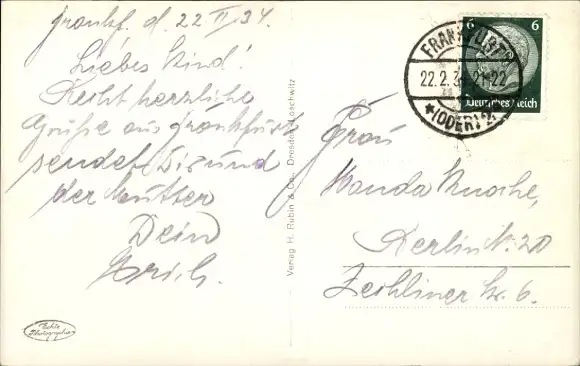 Frankf. d. 22. II. 34.
Liebes Kind!
Recht herzliche
Grüße aus Frankfurt
sendet Dir und
der Mutter
Dein
Erich.
Echte
Photographie
Verlag H. Rubin & Co., Dresden-Loschwitz
FRANKFURT
22.2.34 21-22
*(ODER)2*
6 6
Deutsches Reich
Frau
Wanda
Berlin N. 20
Zechliner Str. 6.